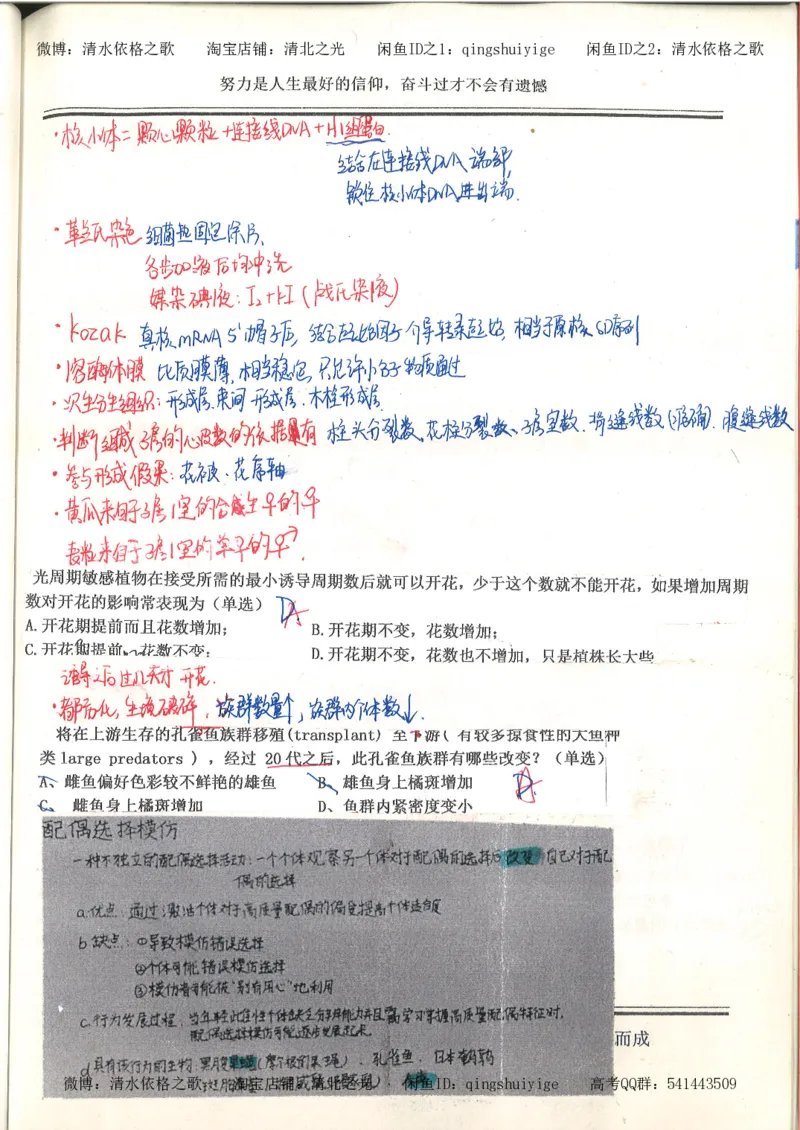 微博：清水依格之歌 淘宝店铺：清北之光 闲鱼ID之1：qingshuiyige 闲鱼ID之2：清水依格之歌
努力是人生最好的信仰，奋斗过才不会有遗憾
·核小体=颗心颗粒+连接线DNA+H1组蛋白.
结合在连接线DNA端部,
锁住核小体DNA进出端.
·革兰氏染色 细菌热固包涂片、
各步加液后均冲洗
媒染碘液：I₂+KI（战氏染液）
·kozak 真核mRNA 5'帽子后，结合起始因子介导转录起始，相当于原核SD序列
·溶酶体膜 比质膜薄，相当稳定，只允许小分子物质通过
·次生分生组织：形成层.束间形成层.木栓形成层
·判断组成子房的心皮数的依据有 柱头分裂数、花柱分裂数、子房室数.背缝线数(准确).腹缝线数
·参与形成假果：花被.花序轴
·黄瓜来自于子房1室的合生
麦粒来自于子房1室的单
光周期敏感植物在接受所需的最小诱导周期数后就可以开花，少于这个数就不能开花，如果增加周期
数对开花的影响常表现为（单选） D A
A.开花期提前而且花数增加； B.开花期不变，花数增加；
C.开花期提前，花数不变； D.开花期不变，花数也不增加，只是植株长大些
诱导之后过几天才开花.
·都市化，生境破碎，族群数量↑，族群内个体数↓.
将在上游生存的孔雀鱼族群移殖(transplant) 至下游( 有较多掠食性的大鱼种
类 large predators )，经过 20代之后，此孔雀鱼族群有哪些改变？（单选）
A、雌鱼偏好色彩较不鲜艳的雄鱼 B、雄鱼身上橘斑增加
C、 雌鱼身上橘斑增加 D、鱼群内紧密度变小
配偶选择模仿
一种不独立的配偶选择活动：一个个体观察另一个体对于配偶的选择后改变自己对于配
偶的选择
a.优点：通过激活个体对于高质量配偶的偏爱提高个体适合度
b.缺点：①导致模仿错误选择
②个体可能错误模仿选择
③模仿者可能被"别有用心"地利用
c.行为发展过程：当年轻此性个体缺乏分辨能力并且需学习掌握高质量配偶特征时，
配偶选择模仿可能逐步发展起来
d.具有该行为的生物：黑腹果蝇、孔雀鱼、日本鹌鹑
而成
微博：清水依格之歌 淘宝店铺：清北之光 闲鱼ID：qingshuiyige 高考QQ群：541443509